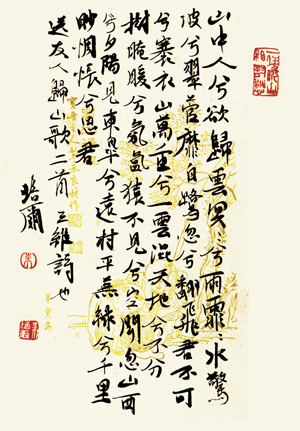 山中人兮欲歸雲冥〻兮雨霏〻水驚
波兮翠菅靡白鷺忽兮翻飛君不可
兮褰衣山萬重兮一雲混天地兮不分
樹晻曖兮氛氳猿不見兮空聞忽山西
兮夕陽見東皋兮遠村平蕪綠兮千里
眇惆悵兮思君
送友人歸山歌二首王維詩也
爾